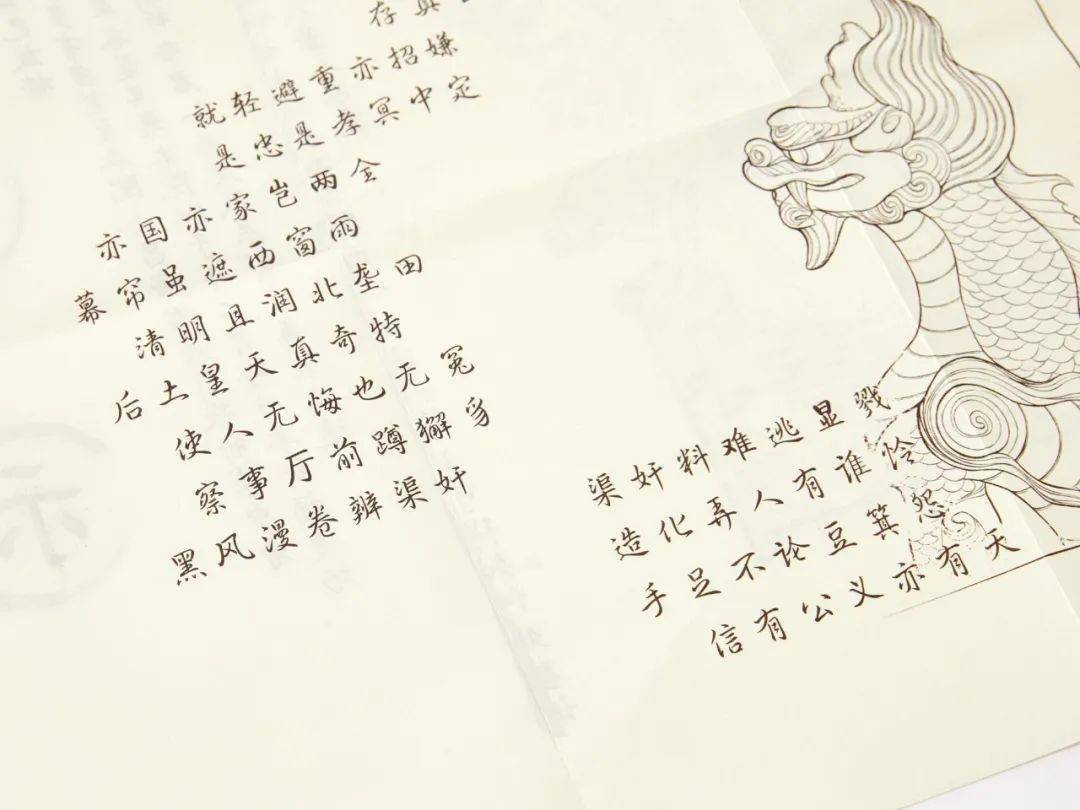 存真
就轻避重亦招嫌
是忠是孝冥中定
亦国亦家岂两全
幕帘虽遮西窗雨
清明且润北垄田
后土皇天真奇特
使人无悔也无冤
察事厅前蹲獬豸
黑风漫卷辨渠奸
渠奸料难逃显戮
造化弄人有谁怜
手足不论豆箕怨
信有公义亦有天